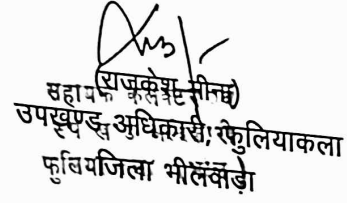 (राजकेश मीना)
सहायक कलेक्टर एवं
उपखण्ड अधिकारी, फुलियाकला
जिला भीलवाड़ा